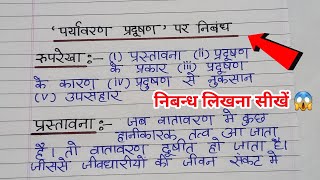 'पर्यावरण प्रदूषण' पर निबंध
रुपरेखा :- (i) प्रस्तावना (ii) प्रदूषण
के प्रकार (iii) प्रदुषण
के कारण (iv) प्रदुषण से नुकसान
(v) उपसंहार
निबन्ध लिखना सीखें
प्रस्तावना :- जब वातावरण में कुछ
हानीकारक तत्व आ जाता
है। तो वातावरण दूषीत हो जाता है।
जीससे जीवधारीयों की जीवन संकट में